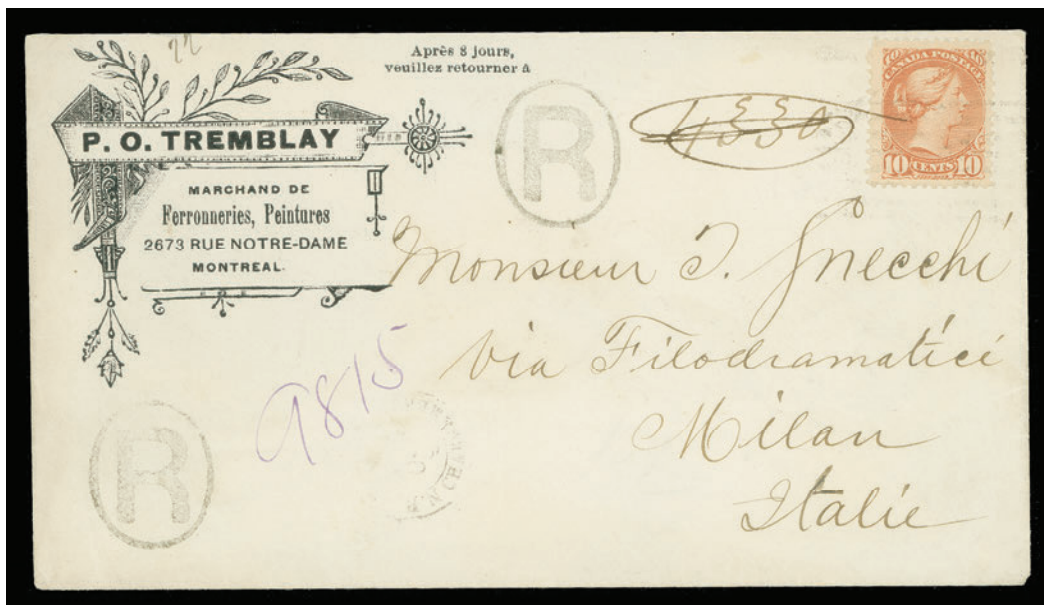 22
Après 8 jours,
veuillez retourner à
P. O. TREMBLAY
MARCHAND DE
Ferronneries, Peintures
2673 RUE NOTRE-DAME
MONTREAL.
R
CANADA POSTAGE
10 CENTS 10
Monsieur I. Gnecchi
via Filodramatici
Milan
Italie
9815
R